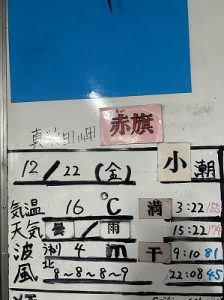 真栄田岬 赤旗
12/22(金) 小潮
気温 16℃ 満 3:22
天気 曇/雨 15:22
波 4m 干 9:10 81
風 北 8~8~8~9 22:08 45